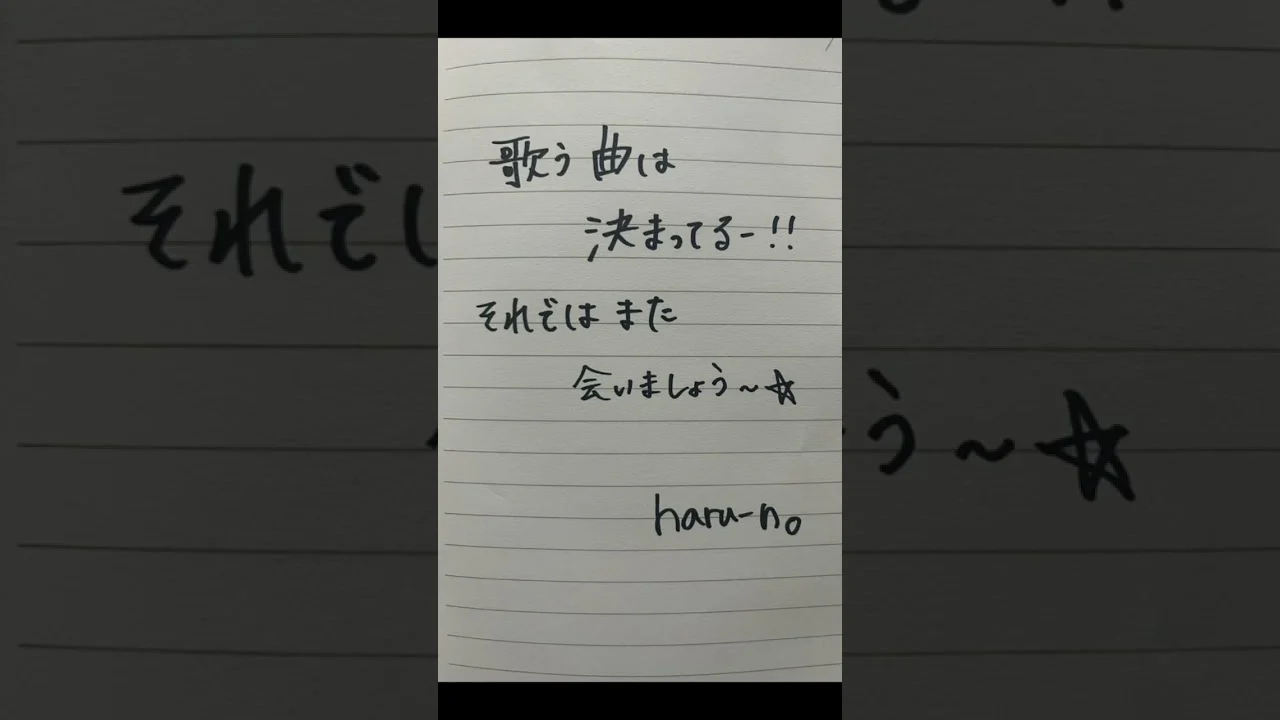 歌う曲は
決まってるー!!
それではまた
会いましょう~☆
haru-no